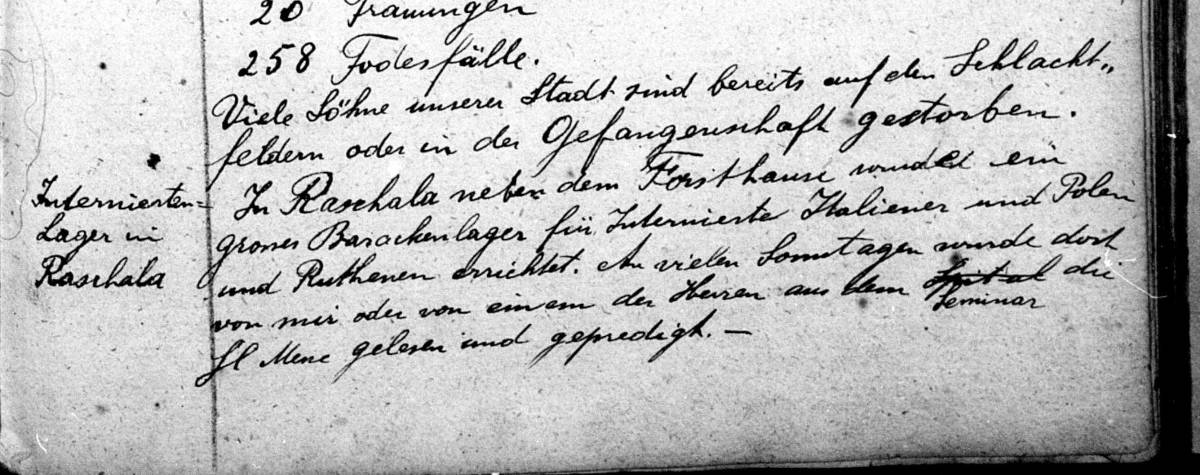 20 Trauungen
258 Todesfälle.
Viele Söhne unserer Stadt sind bereits auf den Schlacht„
feldern oder in der Gefangenschaft gestorben.
Internierten=
Lager in
Raschala
In Raschala neben dem Forsthause wurde ein
grosses Barackenlager für Internierte Italiener und Polen
und Ruthenen errichtet. An vielen Sonntagen wurde dort
von mir oder von einem der Herren aus dem Spital die
Seminar
Hl Messe gelesen und gepredigt. —